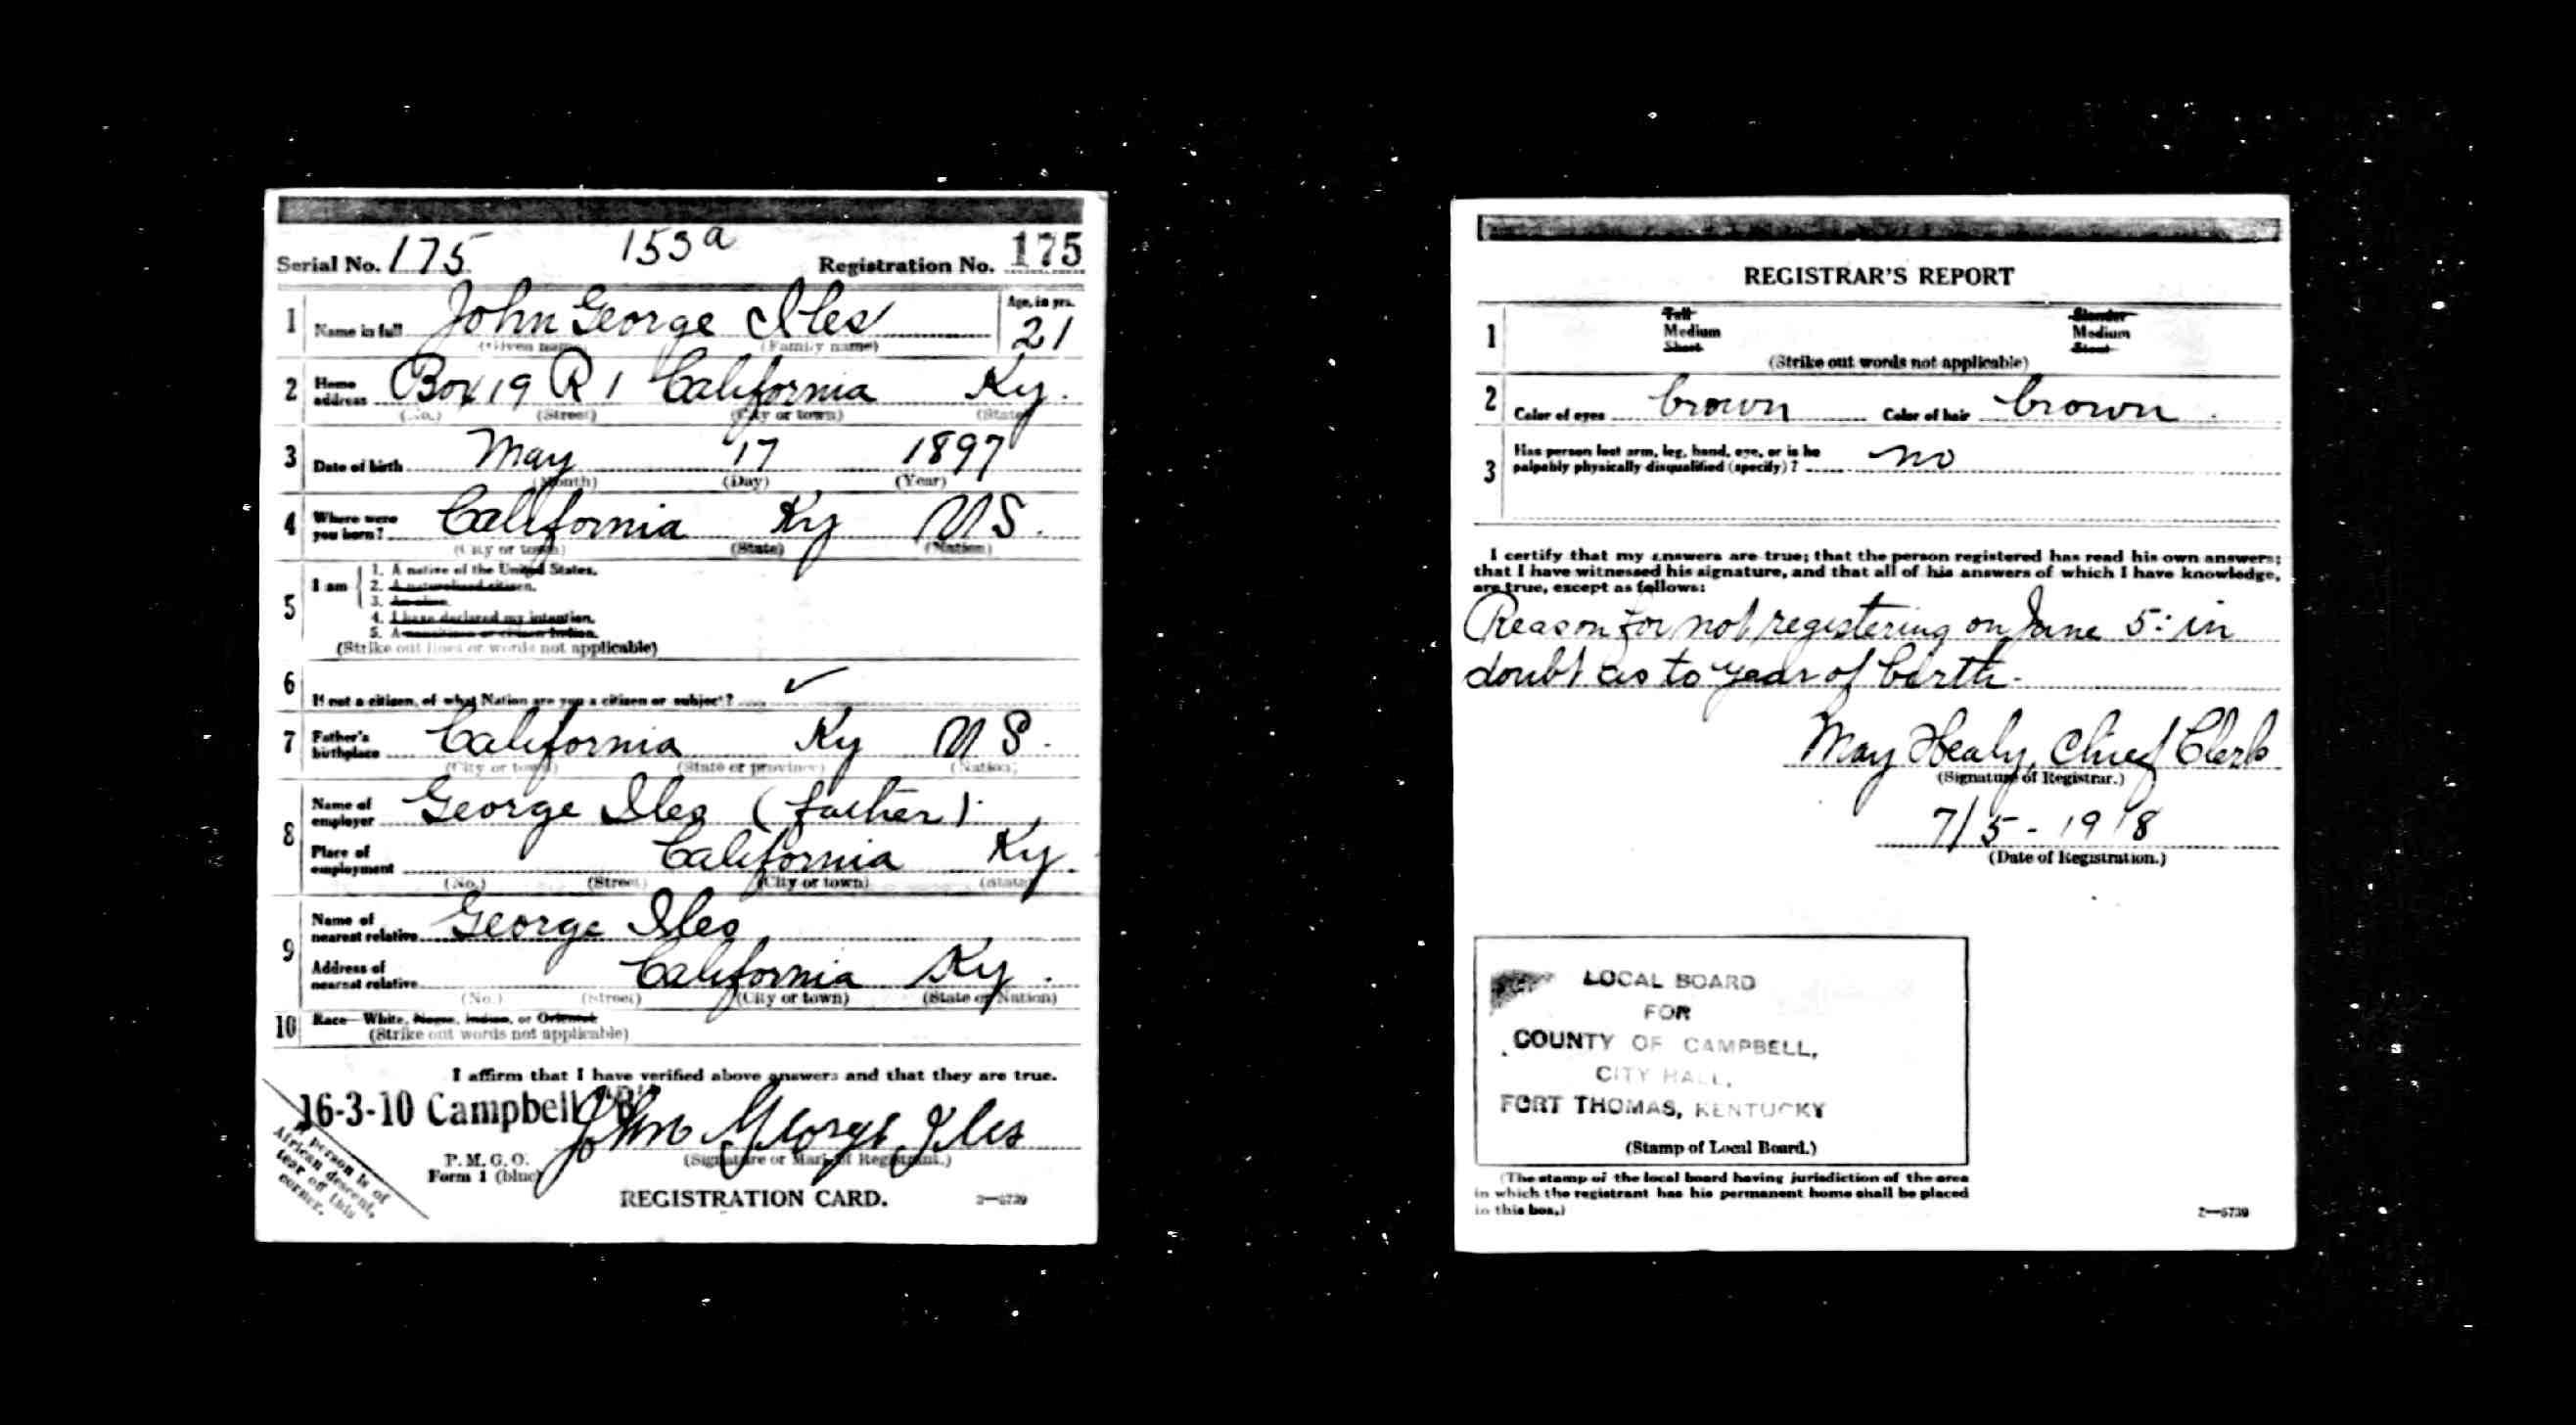 Serial No. 175 153a Registration No. 175
1 Name in full John George Iles Age, in yrs. 21
(Given name) (Family name)
2 Home address Box 19 R 1 California Ky.
(No.) (Street) (City or town) (State)
3 Date of birth May 17 1897
(Month) (Day) (Year)
4 Where were you born? California Ky US.
(City or town) (State) (Nation)
5 I am
1. A native of the United States.
2. A naturalized citizen.
3. An alien.
4. I have declared my intention.
5. A noncitizen or citizen Indian.
(Strike out lines or words not applicable)
6 If not a citizen, of what Nation are you a citizen or subject? ✓
7 Father's birthplace California Ky US.
(City or town) (State or province) (Nation)
8 Name of employer George Iles (father).
Place of employment California Ky.
(No.) (Street) (City or town) (State)
9 Name of nearest relative George Iles
Address of nearest relative California Ky.
(No.) (Street) (City or town) (State or Nation)
10 Race—White, Negro, Indian, or Oriental
(Strike out words not applicable)
I affirm that I have verified above answers and that they are true.
16-3-10 Campbell "B"
John George Iles
(Signature or Mark of Registrant.)
P. M. G. O.
Form 1 (blue)
REGISTRATION CARD.
2—6739
If person is of
African descent,
tear off this
corner.
REGISTRAR'S REPORT
1 Tall Slender
Medium Medium
Short Stout
(Strike out words not applicable)
2 Color of eyes brown Color of hair brown.
3 Has person lost arm, leg, hand, eye, or is he
palpably physically disqualified (specify)? no
I certify that my answers are true; that the person registered has read his own answers;
that I have witnessed his signature, and that all of his answers of which I have knowledge,
are true, except as follows:
Reason for not registering on June 5: in
doubt as to year of birth.
May Healy, Chief Clerk
(Signature of Registrar.)
7/5-1918
(Date of Registration.)
LOCAL BOARD
FOR
COUNTY OF CAMPBELL,
CITY HALL,
FORT THOMAS, KENTUCKY
(Stamp of Local Board.)
(The stamp of the local board having jurisdiction of the area
in which the registrant has his permanent home shall be placed
in this box.)
2—6739